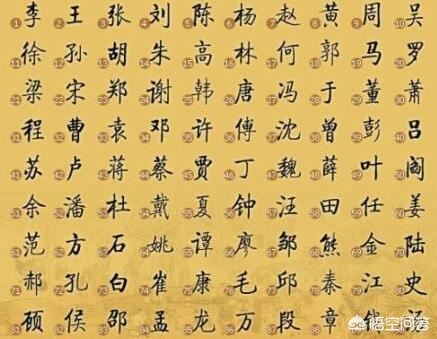 1 李 2 王 3 张 4 刘 5 陈 6 杨 7 赵 8 黄 9 周 10 吴
11 徐 12 孙 13 胡 14 朱 15 高 16 林 17 何 18 郭 19 马 20 罗
21 梁 22 宋 23 郑 24 谢 25 韩 26 唐 27 冯 28 于 29 董 30 萧
31 程 32 曹 33 袁 34 邓 35 许 36 傅 37 沈 38 曾 39 彭 40 吕
41 苏 42 卢 43 蒋 44 蔡 45 贾 46 丁 47 魏 48 薛 49 叶 50 阎
51 余 52 潘 53 杜 54 戴 55 夏 56 钟 57 汪 58 田 59 任 60 姜
61 范 62 方 63 石 64 姚 65 谭 66 廖 67 邹 68 熊 69 金 70 陆
71 郝 72 孔 73 白 74 崔 75 康 76 毛 77 邱 78 秦 79 江 80 史
81 顾 82 侯 83 邵 84 孟 85 龙 86 万 87 段 88 章
悟空问答